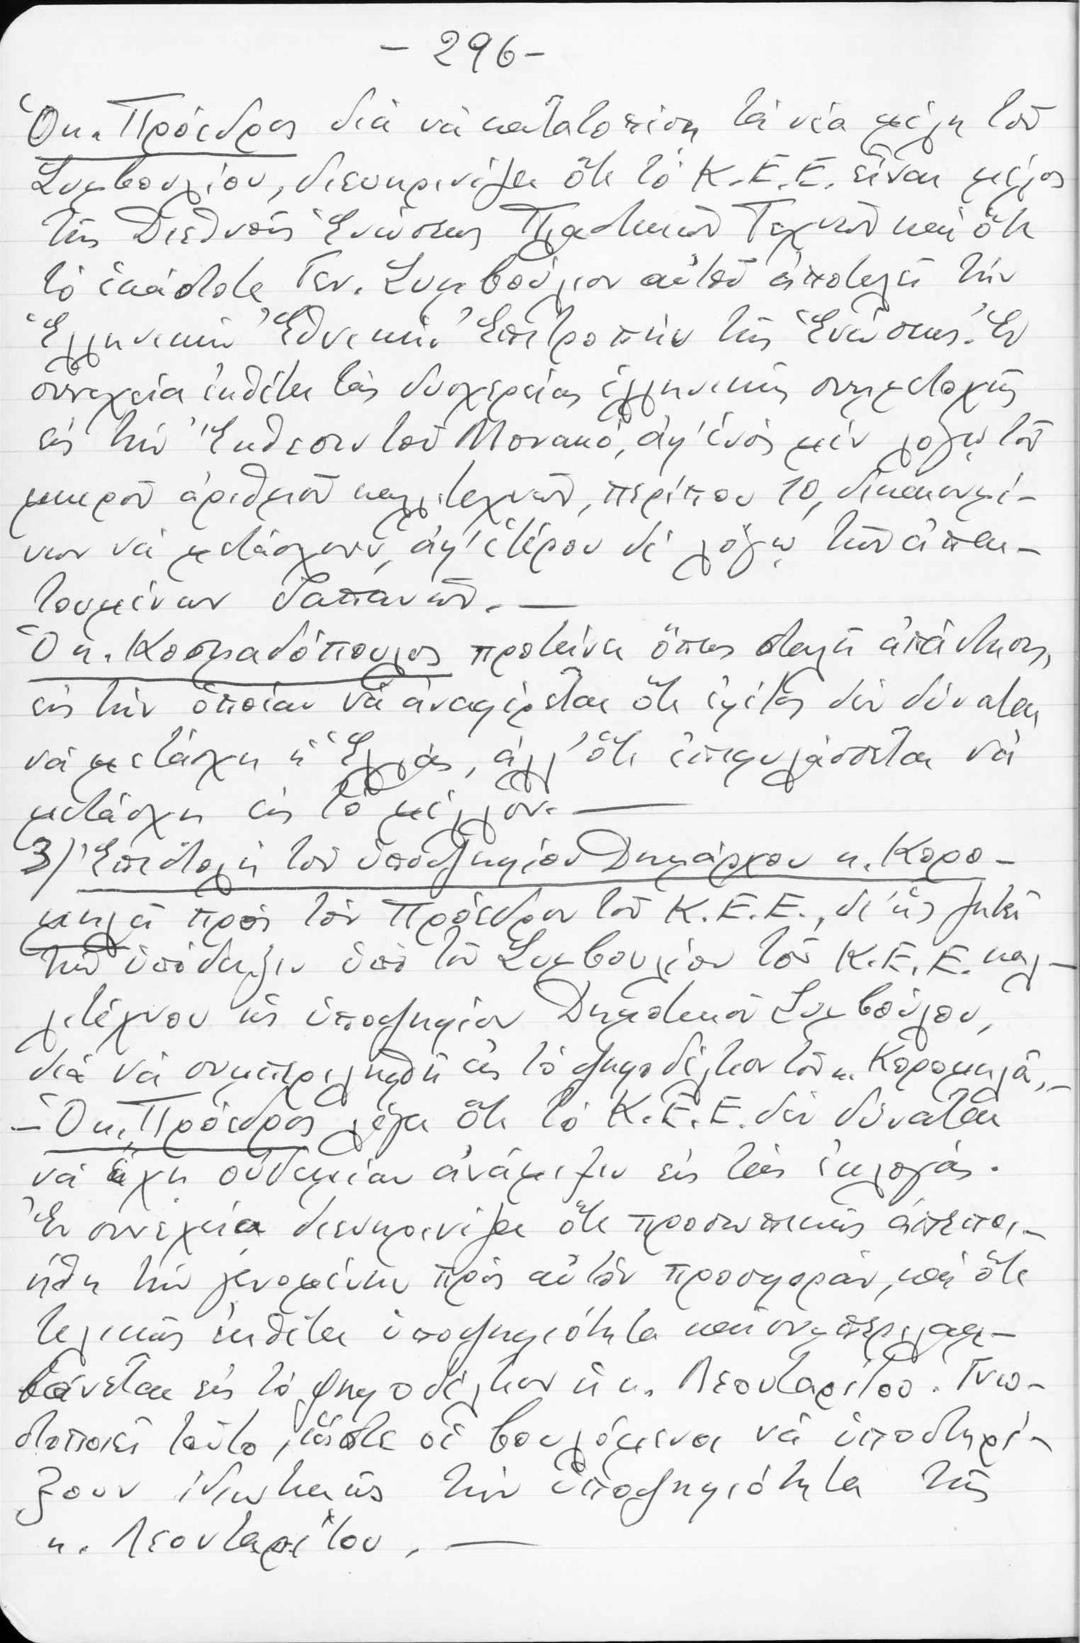 - 296 -
Ὁ κ. Πρόεδρος διὰ νὰ κατατοπίση τὰ νέα μέλη τοῦ
Συμβουλίου, διευκρινίζει ὅτι τὸ Κ.Ε.Ε. εἶναι μέλος
τῆς Διεθνοῦς Ἑνώσεως Πλαστικῶν Τεχνῶν καὶ ὅτι
τὸ ἑκάστοτε Γεν. Συμβούλιον αὐτοῦ ἀποτελεῖ τὴν
Ἑλληνικὴν Ἐθνικὴν Ἐπιτροπὴν τῆς Ἑνώσεως. Ἐν
συνεχεία ἐκθέτει τὰς δυσχερείας ἑλληνικῆς συμμετοχῆς
εἰς τὴν Ἔκθεσιν τοῦ Μονακό, ἀφ' ἑνὸς μὲν λόγῳ τοῦ
μικροῦ ἀριθμοῦ καλλιτεχνῶν, περίπου 10, δικαιουμέ-
νων νὰ μετάσχουν, ἀφ' ἑτέρου δὲ λόγῳ τῶν ἀπαι-
τουμένων δαπανῶν. —
Ὁ κ. Κοσμαδόπουλος προτείνει ὅπως σταλῆ ἀπάντησις,
εἰς τὴν ὁποίαν νὰ ἀναφέρεται ὅτι ἐφέτος δὲν δύναται
νὰ μετάσχη ἡ Ἑλλάς, ἀλλ' ὅτι ἐπιφυλάσσεται νὰ
μετάσχη εἰς τὸ μέλλον. —
3) Ἐπιστολὴ τοῦ ὑποψηφίου Δημάρχου κ. Κορο-
μηλᾶ πρὸς τὸν Πρόεδρον τοῦ Κ.Ε.Ε., δι' ἧς ζητεῖ
τὴν ὑπόδειξιν ὑπὸ τοῦ Συμβουλίου τοῦ Κ.Ε.Ε. καλ-
λιτέχνου ὡς ὑποψηφίου Δημοτικοῦ Συμβούλου,
διὰ νὰ συμπεριληφθῆ εἰς τὸ ψηφοδέλτιον τοῦ κ. Κορομηλᾶ. -
- Ὁ κ. Πρόεδρος λέγει ὅτι τὸ Κ.Ε.Ε. δὲν δύναται
νὰ ἔχη οὐδεμίαν ἀνάμιξιν εἰς τὰς ἐκλογάς.
Ἐν συνεχεία διευκρινίζει ὅτι προσωπικῶς ἀπεποι-
ήθη τὴν γενομένην πρὸς αὐτὸν προσφοράν, καὶ ὅτι
τελικῶς ἐκθέτει ὑποψηφιότητα καὶ συμπεριλαμ-
βάνεται εἰς τὸ ψηφοδέλτιον ἡ κ. Λεονταρίτου. Γνω-
στοποιεῖ τοῦτο, ὥστε οἱ βουλόμενοι νὰ ὑποστηρί-
ξουν ἰδιωτικῶς τὴν ὑποψηφιότητα τῆς
κ. Λεονταρίτου. —